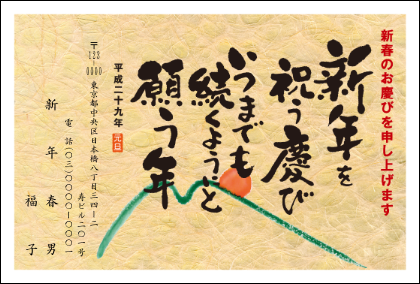 新春のお慶びを申し上げます
新年を
祝う慶び
いつまでも
続くよう…と
願う年
平成二十九年 元旦
東京都中央区日本橋八丁目三四−二
寿ビル二〇一号
電話(〇三)〇〇〇〇−〇〇〇一
新年春男
福子